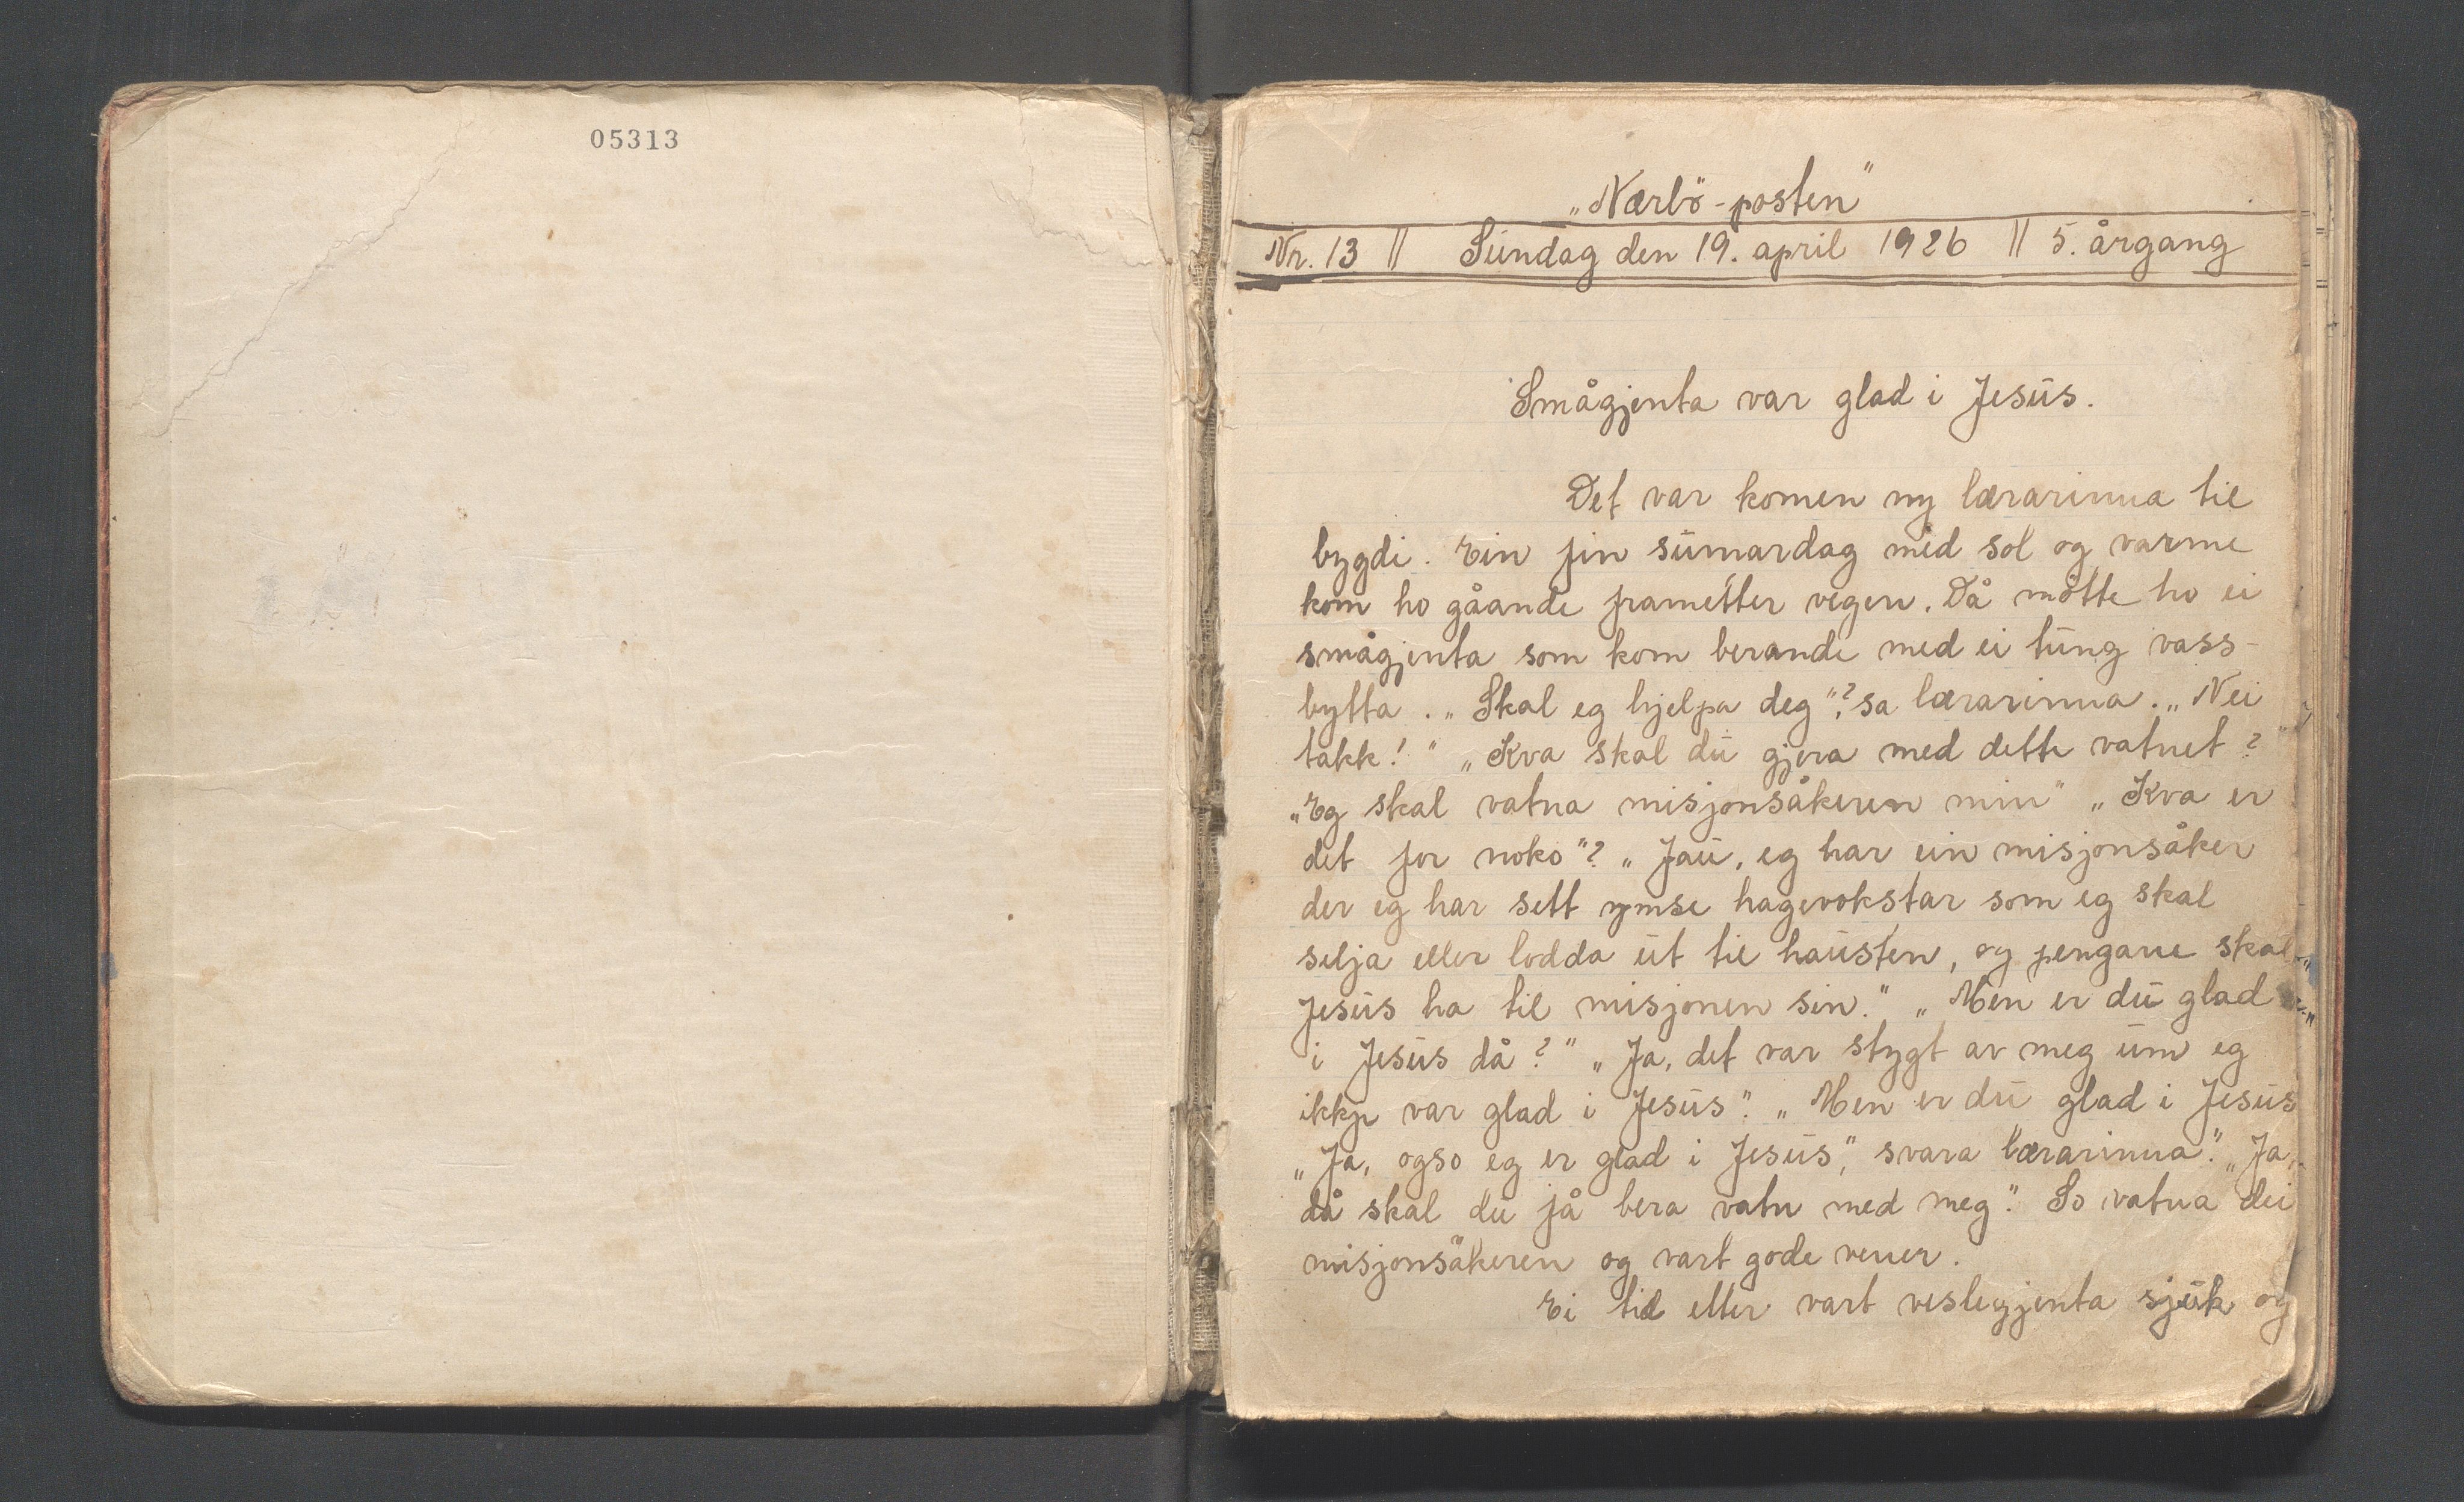 05313
„Nærbö-posten"
Nr. 13 || Sundag den 19. april 1926 || 5. årgang
Smågjenta var glad i Jesus.
Det var komen ny lærarinna til
bygdi. Ein fin sumardag med sol og varme
kom ho gåande frametter vegen. Då møtte ho ei
smågjenta som kom berande med ei tung vass-
bytta. „Skal eg hjelpa deg"? sa lærarinna. „Nei
takk!" „Kva skal du gjera med dette vatnet?"
„Eg skal vatna misjonsåkeren min" „Kva er
det for noko"? „Jau, eg har ein misjonsåker
der eg har sett ymse hagevokstar som eg skal
selja eller lodda ut til hausten, og pengane skal
Jesus ha til misjonen sin." „Men er du glad
i Jesus då?" „Ja, det var stygt av meg um eg
ikkje var glad i Jesus". „Men er du glad i Jesus
„Ja, ogso eg er glad i Jesus," svara lærarinna." „Ja,
då skal du få bera vatn med meg". So vatna dei
misjonsåkeren og vart gode vener.
Ei tid etter vart veslegjenta sjuk og